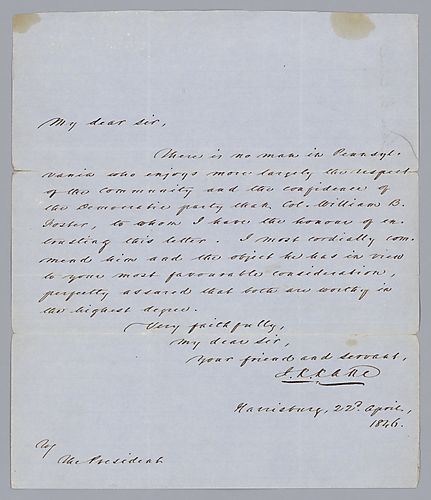 My dear Sir,
There is no man in Pennsyl-
vania who enjoys more largely the respect
of the community and the confidence of
the Democratic party than Col. William B.
Foster, to whom I have the honour of en-
trusting this letter. I most cordially com-
mend him and the object he has in view
to your most favourable consideration,
perfectly assured that both are worthy in
the highest degree.
Very faithfully,
My dear Sir,
Your friend and servant,
J. K. Kane
Harrisburg, 22d April,
1846.
The President